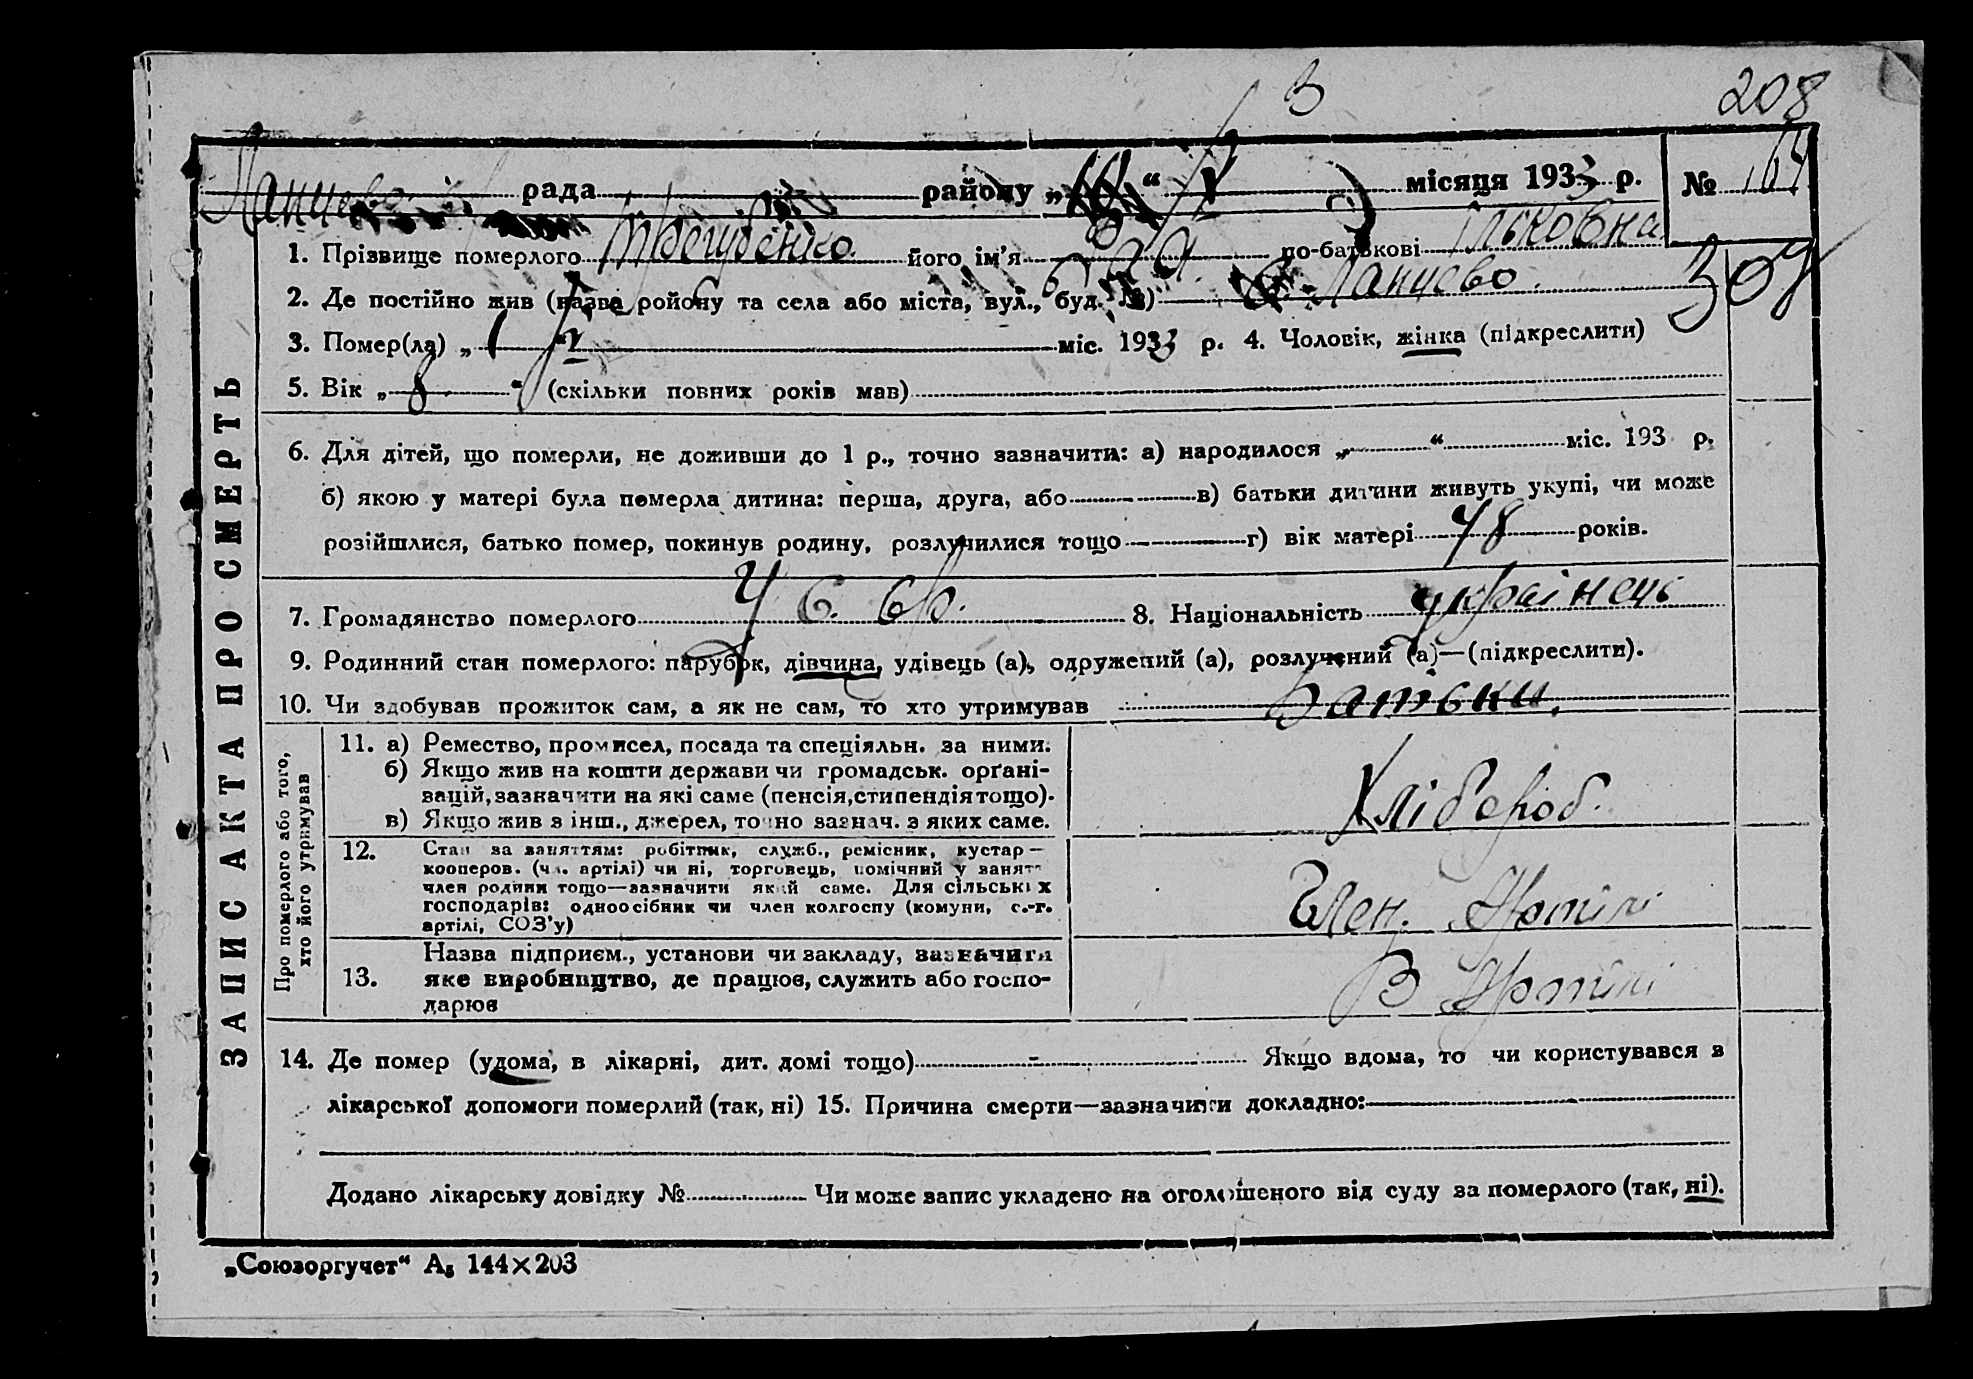 3
208
рада району „ “ місяця 1933 р. № 164
1. Прізвище померлого його ім'я по-батькові Ільковна
2. Де постійно жив (назва ройону та села або міста, вул., буд. №) с. Ланцево 307
3. Помер(ла) „1“ V міс. 1933 р. 4. Чоловік, жінка (підкреслити)
5. Вік „8“ (скільки повних років мав)
6. Для дітей, що померли, не доживши до 1 р., точно зазначити: а) народилося „ “ міс. 193 р.
б) якою у матері була померла дитина: перша, друга, або в) батьки дитини живуть укупі, чи може
розійшлися, батько помер, покинув родину, розлучилися тощо г) вік матері 48 років.
7. Громадянство померлого У С. С. Р. 8. Національність українець
9. Родинний стан померлого: парубок, дівчина, удівець (а), одружений (а), розлучений (а)—(підкреслити).
10. Чи здобував прожиток сам, а як не сам, то хто утримував Батьки.
ЗАПИС АКТА ПРО СМЕРТЬ
Про померлого або того,
хто його утримував
11. а) Ремество, промисел, посада та спеціяльн. за ними.
б) Якщо жив на кошти держави чи громадськ. орґані-
зацій, зазначити на які саме (пенсія, стипендія тощо).
в) Якщо жив з інш., джерел, точно зазнач. з яких саме.
Хлібороб.
12. Стан за заняттям: робітник, служб., ремісник, кустар—
кооперов. (чл. артілі) чи ні, торговець, помічний у занят-
член родини тощо—зазначити який саме. Для сільських
господарів: одноосібник чи член колгоспу (комуни, с.-г.
артілі, СОЗ'у)
Член. Артілі
13. Назва підприєм., установи чи закладу, зазначити
яке виробництво, де працює, служить або госпо-
дарює
В Артілі
14. Де помер (удома, в лікарні, дит. домі тощо) Якщо вдома, то чи користувався з
лікарської допомоги померлий (так, ні) 15. Причина смерти—зазначити докладно:
Додано лікарську довідку № Чи може запис укладено на оголошеного від суду за померлого (так, ні).
„Союзоргучет“ А5 144×203